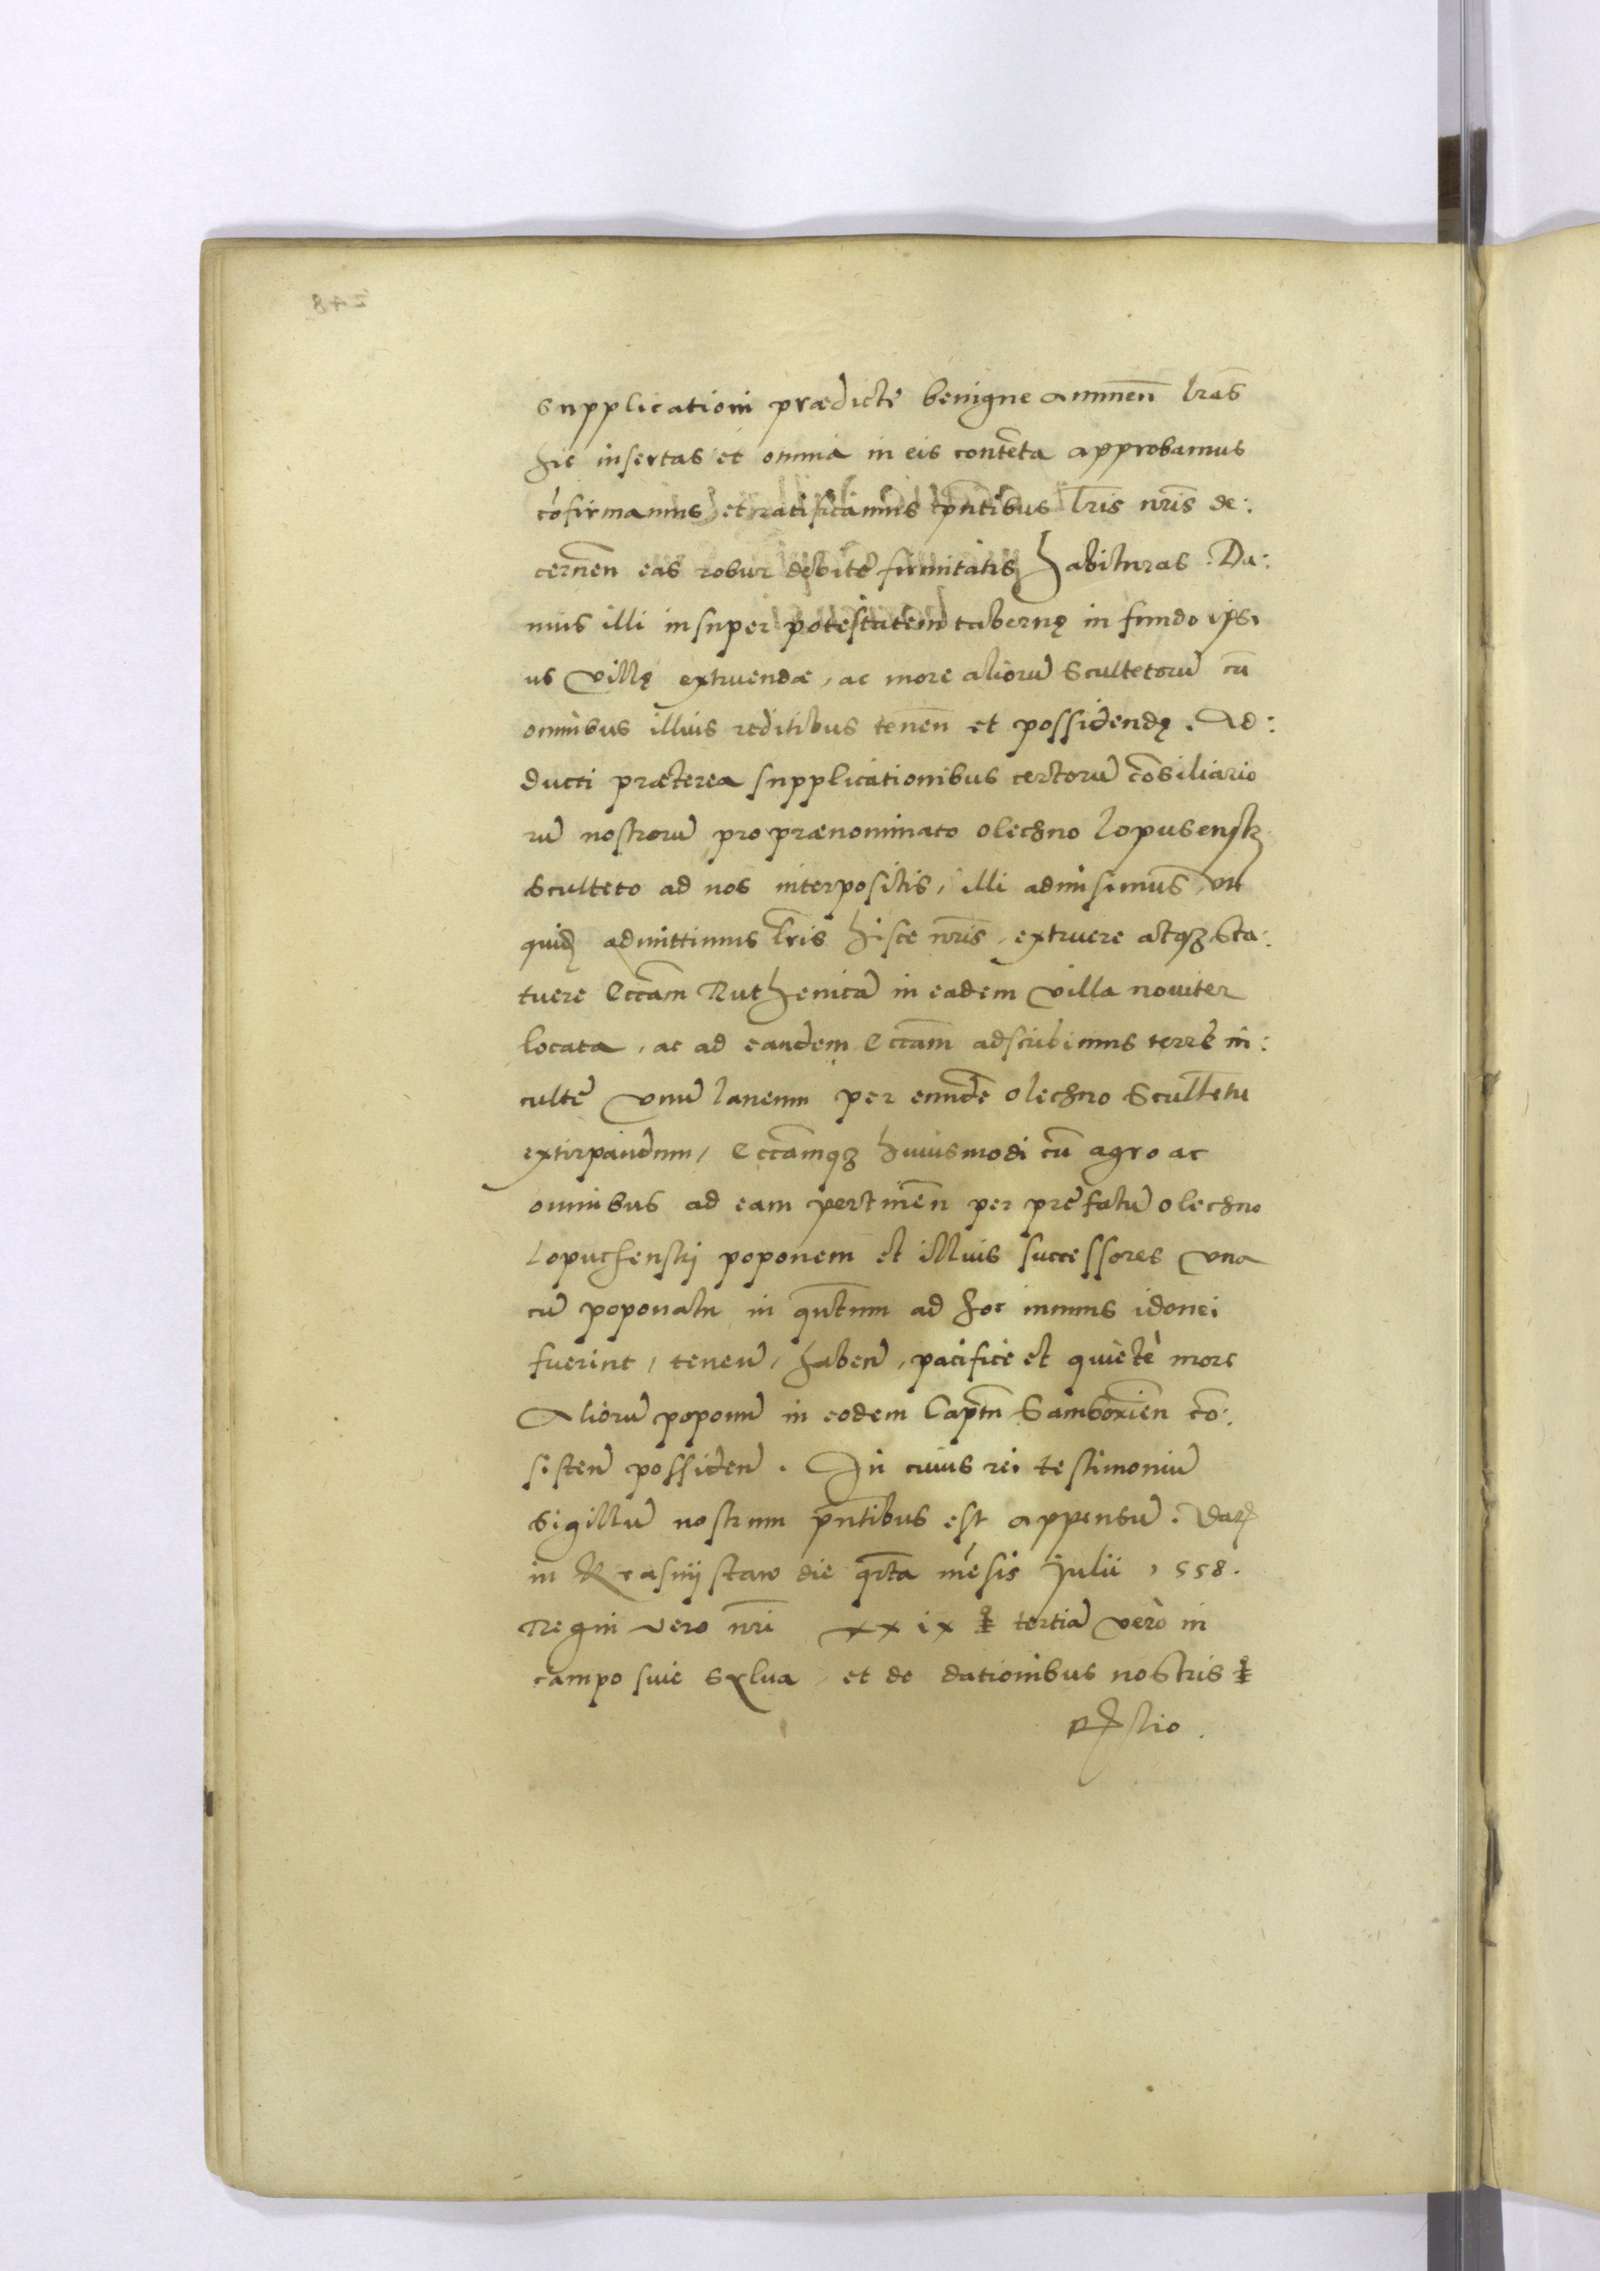 supplicationi prædicte benigne annuen̄ lr̄as
hic insertas et omnia in eis contēta approbamus
cōfirmamus et ratificamus pn̄tibus lr̄is nr̄is de:
cernen̄ eas robur debite firmitatis habituras. Da:
mus illi insuper potestatem tabernę in fundo ipsi
us villę extruendæ, ac more aliorū Scultetorū cū
omnibus illius reditibus tenen̄ et possidendę. Ad:
ducti præterea supplicationibus certorū cōsiliario
rū nostrorū pro prænominato olechno Lopusensk
Sculteto ad nos interpositis, illi admisimus, uti
quidē admittimus lr̄is hisce nr̄is, extruere atqȝ Sta:
tuere Eccām Ruthenicā in eadem villa noviter
locata, ac ad eandem Eccām adscribimus terre in:
culte vnū laneum per eundē olechno Scultetū
extirpandum, Eccāmqȝ huiusmodi cū agro ac
omnibus ad eam pertinen̄ per prefatū olechno
Lopuchenskj poponem et illius successores vna
cū poponatu in qn̄tum ad hoc munus idonei
fuerint, tenen̄, haben̄, pacifice et quietè more
Aliorū poponū in eodem Cap̄tu Samborien̄ cō:
sisten̄ possiden̄. In cuius rei testimoniū
Sigillū nostrum pn̄tibus est appensū. Dat
in Krasnijstaw die qr̄ta mēsis Julii 1558.
Regni vero nr̄i xxix tertiā verò in
campo sive sylva, et de dationibus nostris